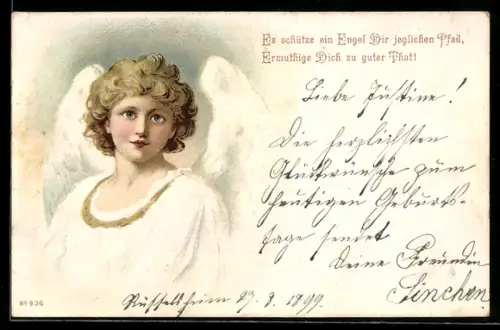 Es schütze ein Engel Dir jeglichen Pfad,
Ermuthige Dich zu guter That!
Liebe Justine!
Die herzlichsten
Glückwünsche zum
heutigen Geburts-
tage sendet
Deine Freundin
Linchen
Rüsselsheim 1899.
No 936